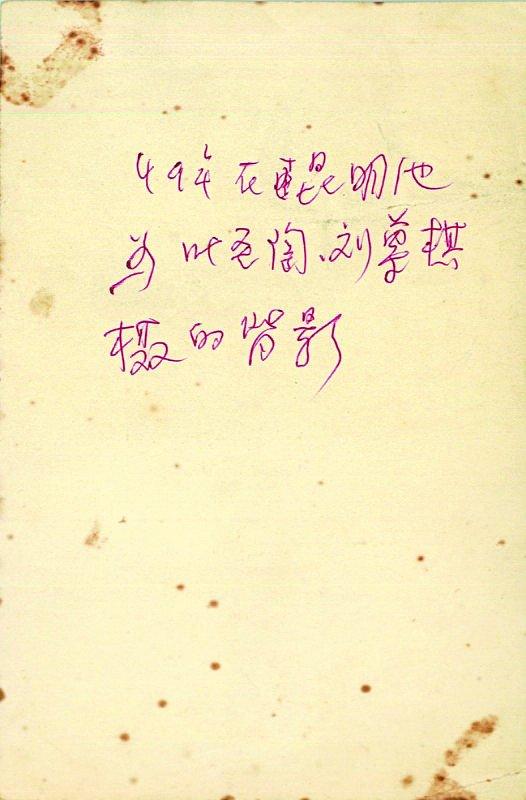 49年在昆明池
为叶圣陶、刘尊棋
摄的背影